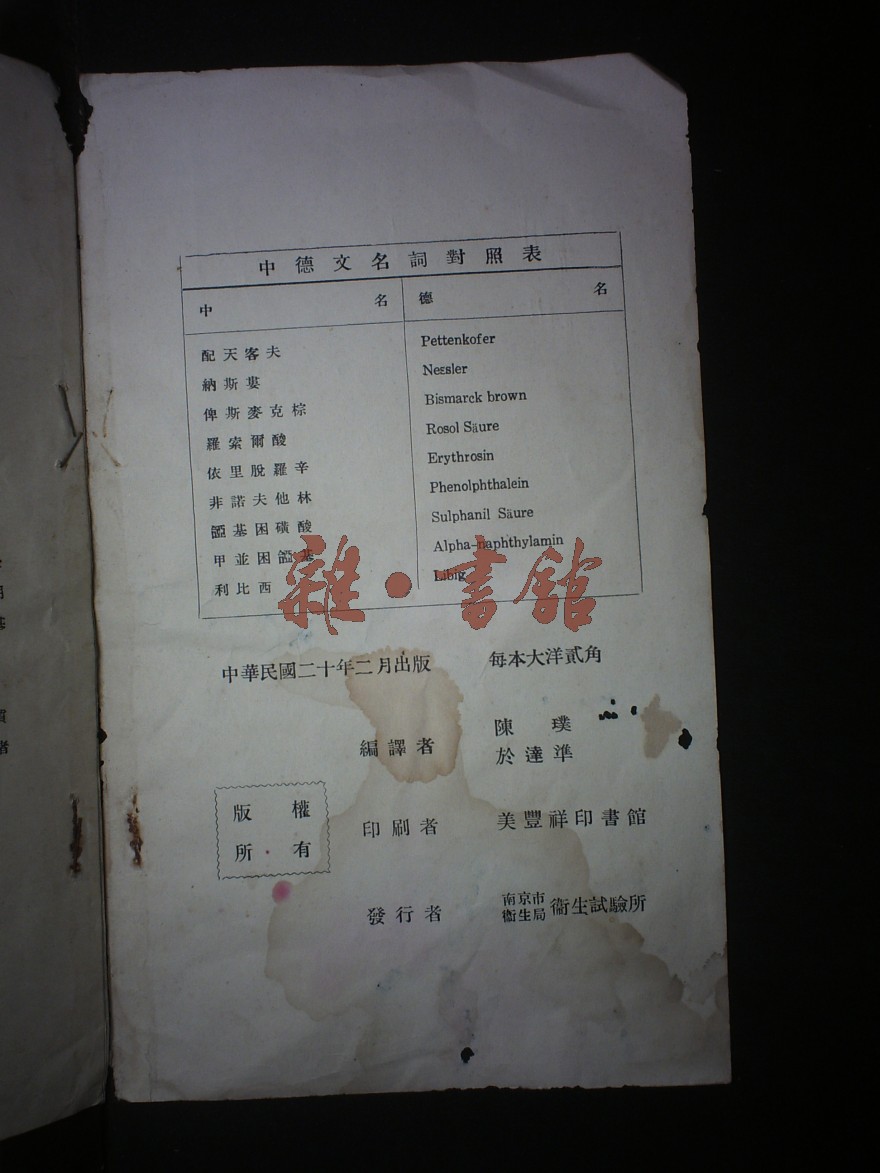 中德文名詞對照表
中名 德名
配天客夫 Pettenkofer
納斯婁 Nessler
俾斯麥克棕 Bismarck brown
羅索爾酸 Rosol Säure
依里脫羅辛 Erythrosin
非諾夫他林 Phenolphthalein
基困磺酸 Sulphanil Säure
甲並困 Alpha-naphthylamin
利比西 Libig
雜·書館
中華民國二十年二月出版 每本大洋貳角
編譯者 陳璞
於達準
版權
所有
印刷者 美豐祥印書館
發行者 南京市衞生局衞生試驗所